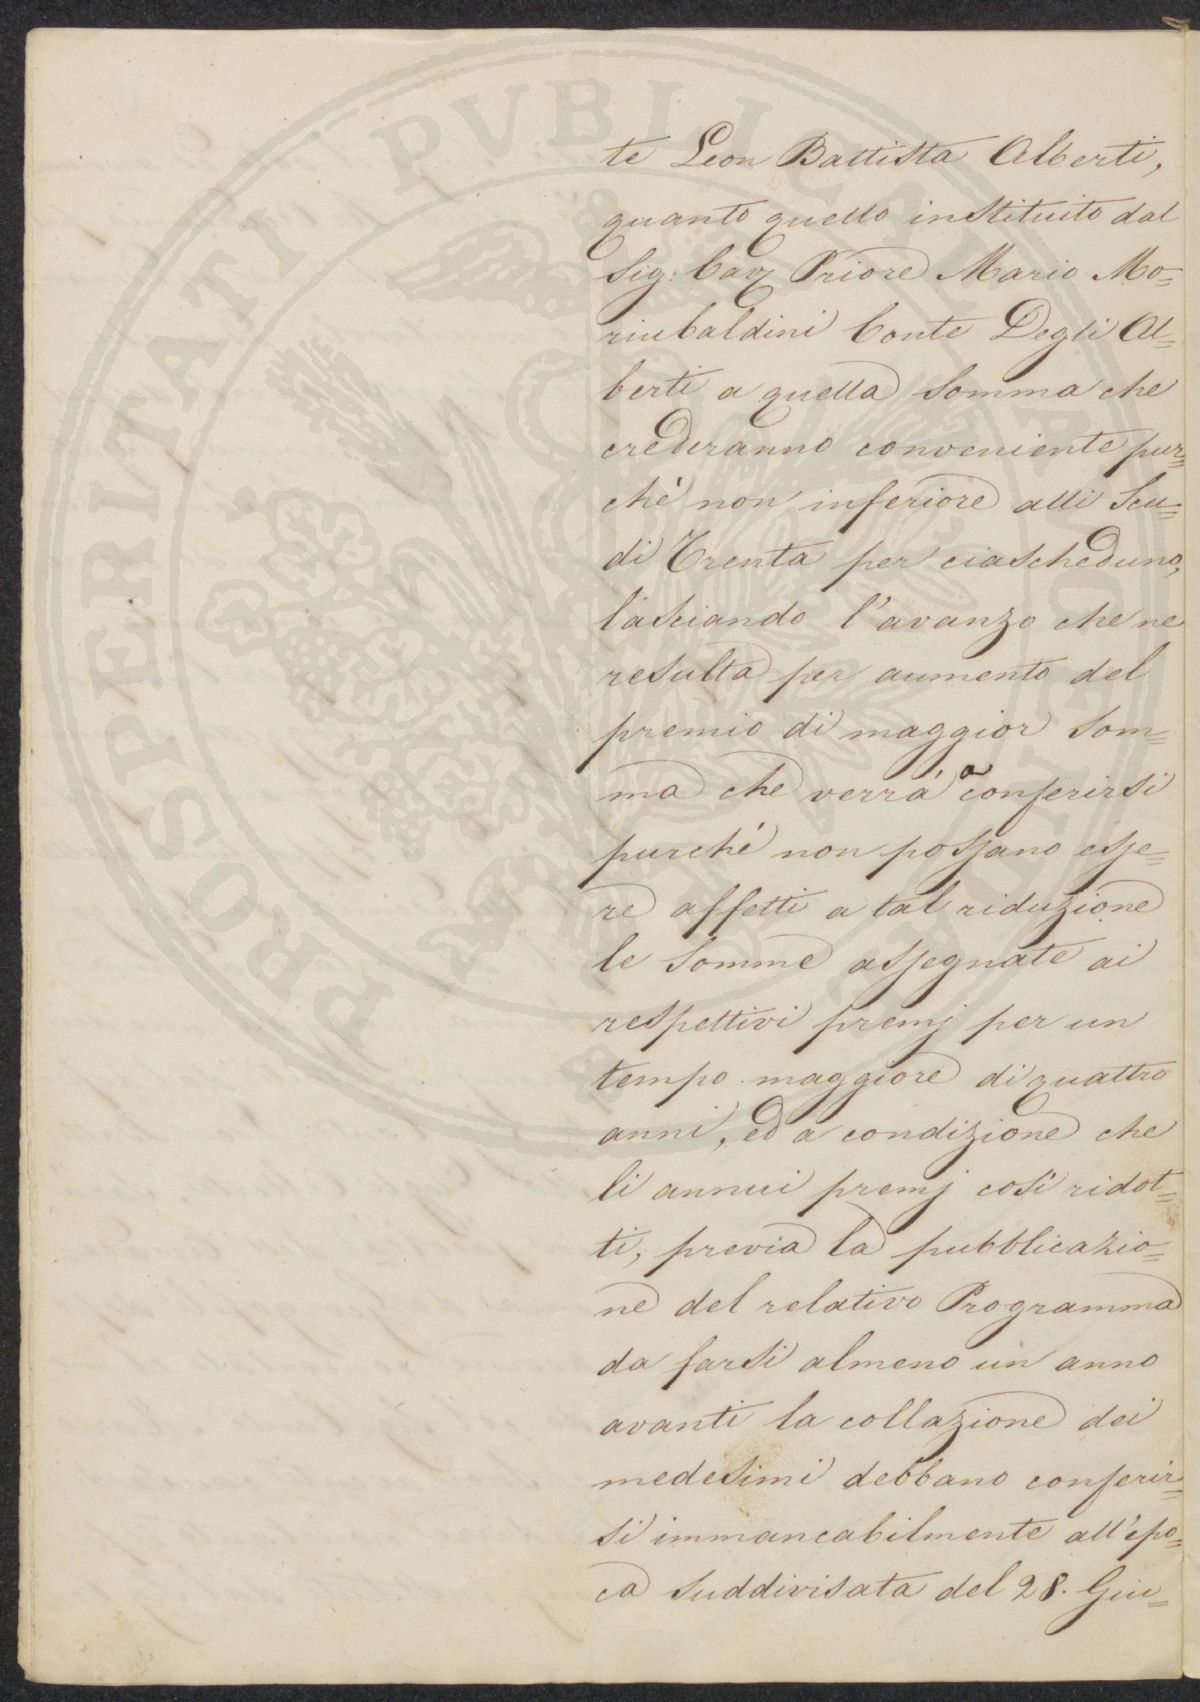 te Leon Battista Alberti,
quanto quello instituito dal
Sig: Cav Priore Mario Mo=
riubaldini Conte Degli Al=
berti a quella Somma che
crederanno conveniente pur=
ché non inferiore alli Scu=
di Trenta per ciascheduno,
lasciando l'avanzo che ne
resulta per aumento del
premio di maggior Som=
ma che verrà a conferirsi
purché non possano esse=
re affetti a tal riduzione
le Somme assegnate ai
respettivi premj per un
tempo maggiore di quattro
anni, ed a condizione che
li annui premj così ridot=
ti, previa la pubblicazio=
ne del relativo Programma
da farsi almeno un anno
avanti la collazione dei
medesimi debbano conferir=
si immancabilmente all'epo=
ca Suddivisata del 28. Giu=
PROSPERITATI PVBLICAE